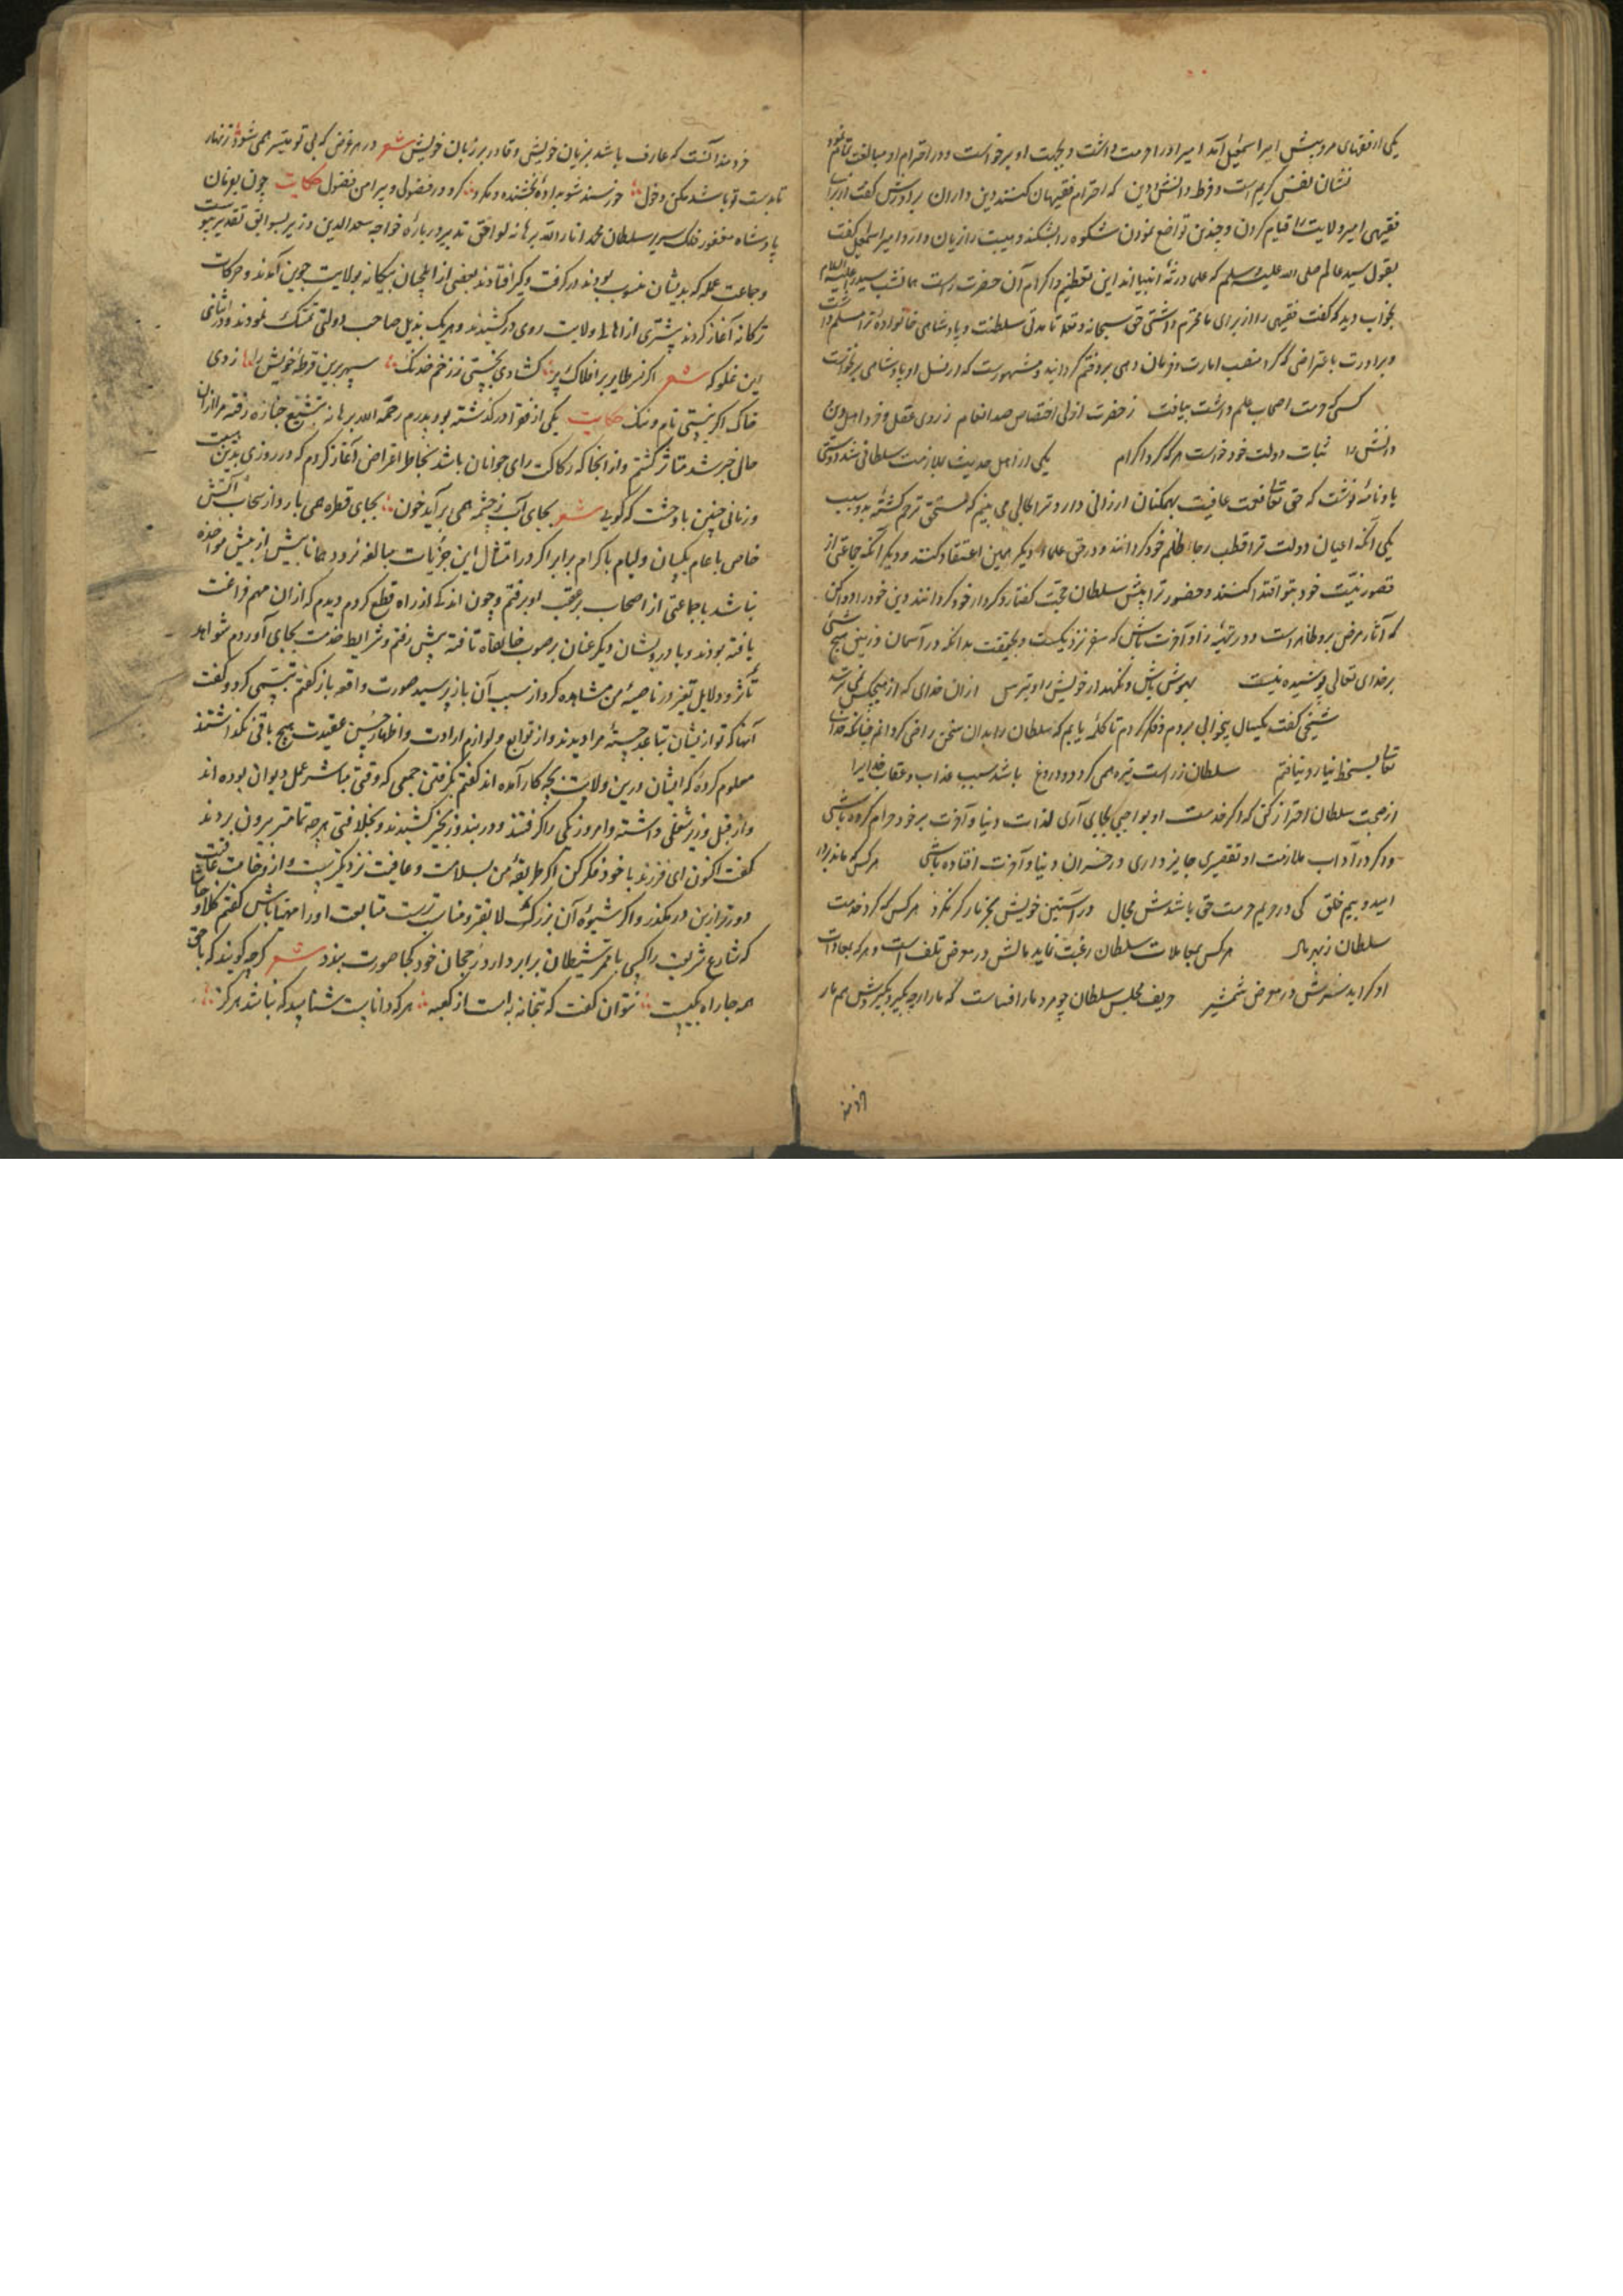 یکی از فقهای مرو پیش امیر اسمعیل آمد امیر او را حرمت داشت و بجهت او برخواست و در احترام او مبالغت تمام نمود
نشان نفس کریم است و فرط دانش و دین که احترام فقیهان کنند دین داران برادرش گفت از برای
فقیهی امیر ولایت را قیام کردن و چندین تواضع نمودن شکوه را بشکند و هیبت را زیان دارد امیر اسمعیل گفت
بقول سید عالم صلی الله علیه و سلم که علما ورثهٔ انبیا اند این تعظیم و اکرام آن حضرت راست همانشب سید را علیه السلام
بخواب دید که گفت فقیهی را از برای ما محترم داشتی حق سبحانه و تعالی تا مدتی سلطنت و پادشاهی خانوادهٔ ترا مسلم داشت
و برادرت باعتراضی که کرد منصب امارت و فرمان دهی برو ختم گردانید و مشهورست که از نسل او پادشاهی برنخواست
کسی که حرمت اصحاب علم داشت بیافت ز حضرت ازلی اختصاص صد انعام ز روی عقل و خرد اهل دین
و دانش را ثبات دولت خود خواست هر که کرد اکرام یکی از اهل حدیث بملازمت سلطانی شد دوستی
باو نامهٔ نوشت که حق تعالی نعمت عافیت بهمکنان ارزانی دارد ترا بحالی می بینم که مستحق ترحم گشتهٔ بدو سبب
یکی آنکه اعیان دولت ترا قطب رحا ظلم خود گردانند و در حق علماء دیگر همین اعتقاد کنند و دیگر آنکه جماعتی از
قصور نیّت خود بتو اقتدا کنند و حضور ترا پیش سلطان حجت گفتار و کردار خود گردانند دین خود را دوا کن
که آثار مرض برو ظاهر است و در تهیهٔ زاد آخرت باش که سفر نزدیکست و بحقیقت بدانکه در آسمان و زمین هیچ شئ
بر خدای تعالی پوشیده نیست بهوش باش و نگهدار خویش را و بترس ازان خدای که از هیچکس نمی ترسد
شیخی گفت یکسال بیخوابی بردم و فکر کردم تا کلمهٔ یابم که سلطان را بدان سخن راضی گردانم چنانکه خدای
تعالی بسخط نیارد نیافتم سلطان ز راست تیره همی گردد و دروغ باشد سبب عذاب و عقاب خدایرا
از صحبت سلطان احتراز کنی که اگر خدمت او بواجبی بجای آری لذات دنیا و آخرت بر خود حرام کرده باشی
و اگر در آداب ملازمت او تقصیری جایز داری در خسران دنیا و آخرت افتاده باشی هر کس که ماند بر در
امید و بیم خلق کی در حریم حرمت حق باشدش مجال در آستین خویش بجز نار گرنکرد هر کس که کرد خدمت
سلطان ز بهر مال هر کس بمعاملات سلطان رغبت نماید مالش در معرض تلف است و هر که بمعادات
او گراید سرش در معرض شمشیر حریف مجلس سلطان چو مرد مار افساست که مار ار چه بگیرد بگیردش هم مار
خردمند
خردمند آنست که عارف باشد بزیان خویش و قادر بر زبان خویش شعر در هر غرض که بی تو میسر همی شود زنهار
تا بدست تو باشد مکن دخول خورسند شو بدادهٔ بخشنده و مگرد گرد در فضولی و پیرامن فضول حکایت چون بفرمان
پادشاه مغفور فلک سریر سلطان محمد انار الله برهانه لوافق تدبیر در بارهٔ خواجه سعد الدین وزیر بسوابق تقدیر پیوست
و جماعت عمله که بدیشان منسوب بودند در گرفت و گیر افتادند بعضی از ایلچیان بیگانه بولایت جوین آمدند و حرکات
ترکانه آغاز کردند پیشتری از اهالی ولایت روی در کشیدند و هر یک بذیل صاحب دولتی تمسک نمودند و در اثنای
این غلو که شعر اگر نسر طایر بر افلاک پر گشادی بخستی ز زخم خدنگ سپهر برین قرطهٔ خویش را زدی
چاک اگر نیستی نام و ننگ حکایت یکی از فقرا درگذشته بود پدرم رحمه الله برهانه بتشییع جنازه رفته مرا ازان
حالی خبر شد متأثر گشتم و از آنجا که رکاکت رای جوانان باشد بخاطر اعراض آغاز کردم که در روزی بدین هیبت
و زمانی چنین با وحشت که گویی شعر بجای آب ز چشمه همی برآید خون بجای قطره همی بارد از سحاب آتش
خاص با عام یکسان و لئام با کرام برابر اگر در امثال این جزئیات مبالغه نرود همانا بیش از بیش مؤاخذه
نباشد با جماعتی از اصحاب بر عقب او برفتم و چون اندکی از راه قطع کردم دیدم که ازان مهم فراغت
یافته بودند و با درویشان دیگر عنان بر صوب خانقاه تافته پیش رفتم و شرایط خدمت بجای آوردم شواهد
تأثر و دلایل تغیر در ناصیهٔ من مشاهده کرد از سبب آن باز پرسید صورت واقعه باز گفتم تبسمی کرد و گفت
آنها که تو ازیشان تباعد جستهٔ مرا دیدند و از توابع و لوازم ارادت و اظهار حسن عقیدت هیچ باقی نگذاشتند
معلوم کردهٔ که ایشان درین ولایت بچه کار آمده اند گفتم بگرفتن جمعی که وقتی مباشر عمل دیوان بوده اند
و از قبل وزیر شغلی داشته و امروز یکی را گرفتند و در بند و زنجیر کشیدند و بخلافتی هر چه تمامتر بیرون بردند
گفت اکنون ای فرزند با خود فکر کن اگر طریقهٔ من بسلامت و عافیت نزدیکتر است و از وخامت عاقبت
دورتر ازین در مگذر و اگر شیوهٔ آن بزرگ لایقتر و مناسب ترست متابعت او را مهیا باش گفتم کلا و حاشا
که شارع شریعت را کسی با ممر شیطان برابر دارد رجحان خود کجا صورت بندد شعر گرچه گویند که با حق
همه جا راه یکیست نتوان گفت که بتخانه به است از کعبه هر که داناست شناسد که نباشد هرگز